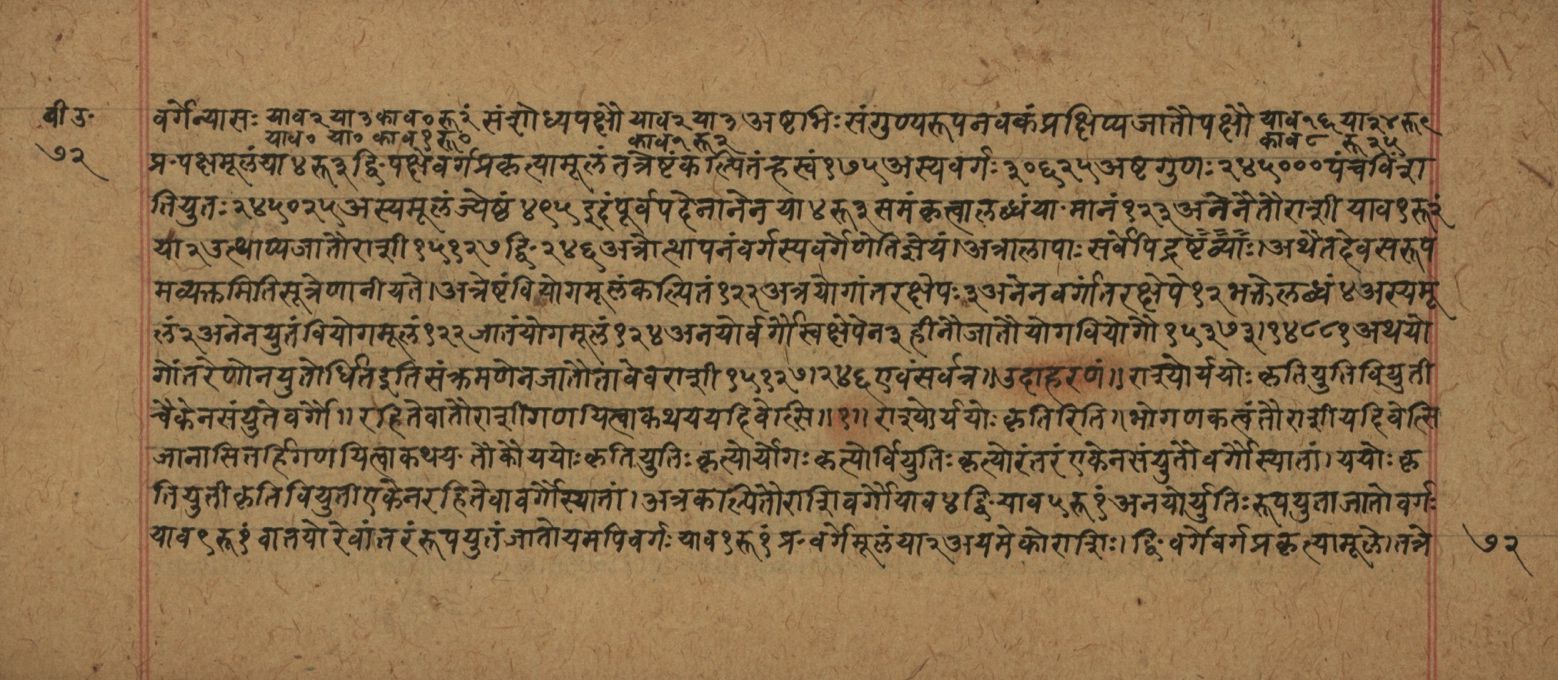 बी उ॰
७२
वर्गेन्यासः याव२ या३ काव॰रू२ं संशोध्यपक्षौ याव२ या३ अष्टभिः संगुण्यरूपनवकंप्रक्षिप्यजातौपक्षौ याव१६ या२४रू९
याव॰ या॰ काव१रू॰ काव१रू२ काव८ रू२५
प्र॰पक्षमूलंया४रू३द्वि॰पक्षेवर्गप्रकृत्यामूलं तत्रेष्टंकल्पितंन्हस्वं१७५अस्यवर्गः३०६२५अष्टगुणः२४५०००पंचविंशा
तियुतः२४५०२५अस्यमूलंज्येष्ठं४९५इदंपूर्वपदेनानेन या४रू३समंकृत्वालब्धंया॰मानं१२३अनेनैतौराशी याव१रू२ं
या२उत्थाप्यजातौराशी१५१२७द्वि॰२४६अत्रोत्थापनंवर्गस्यवर्गेणेतिज्ञेयं।अत्रालापाः सर्वेपिद्रष्टव्याः।अथैतदेवसरूप
मव्यक्तमितिसूत्रेणानीयते।अत्रेष्टंवियोगमूलंकल्पितं१२२अत्रयोगांतरक्षेपः३अनेनवर्गांतरक्षेपे१२भक्तेलब्धं४अस्यमू
लं२अनेनयुतंवियोगमूलं१२२जातंयोगमूलं१२४अनयोर्वर्गौस्वक्षेपेन३हीनौजातौयोगवियोगौ१५३७३।१४८८१अथयो
गोंतरेणोनयुतोर्धितइतिसंक्रमणेनजातौतावेवराशी१५१२७।२४६एवंसर्वत्र॥उदाहरणं॥राश्योर्ययोः कृतियुतिवियुती
चैकेनसंयुतेवर्गौ॥रहितेवातौराशीगणयित्वाकथययदिवेत्सि॥१॥राश्योर्ययोः कृतिरिति॥भोगणकत्वंतौराशीयदिवेत्सि
जानासितर्हिगणयित्वाकथय॰तौकौययोः कृतियुतिः कृत्योर्योगः कृत्योर्वियुतिः कृत्योरंतरंएकेनसंयुतौवर्गौस्यातां।ययोः कृ
तियुतीकृतिवियुतीएकेनरहितेवावर्गौस्यातां।अत्रकल्पितौराशिवर्गौयाव४द्वि॰याव५रू१ंअनयोर्युतिः रूपयुताजातोवर्गः
याव९रू१ंवातयोरेवांतरंरूपयुतंजातोयमपिवर्गः याव१रू१ंप्र॰वर्गेमूलंया२अयमेकोराशिः।द्वि॰वर्गेवर्गप्रकृत्यामूले।तत्रे
७२